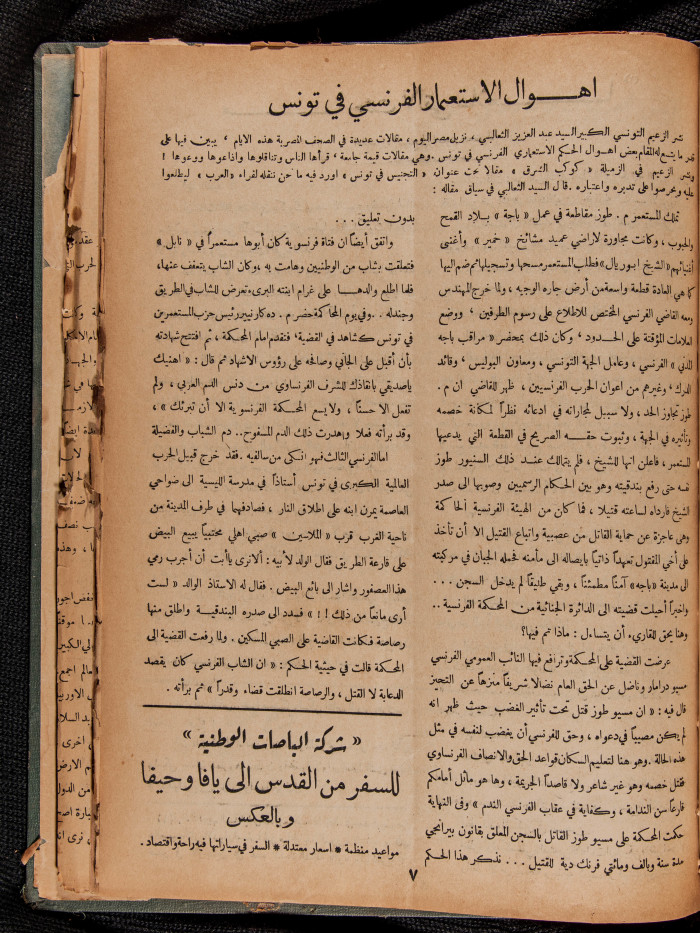 اهـــوال الاستعمار الفرنسي في تونس
نشر الزعيم التونسي الكبير السيد عبد العزيز الثعالبي ، نزيل مصر اليوم ، مقالات عديدة في الصحف المصرية هذه الايام ، يبين فيها على
قدر ما يتسع له المقام بعض اهـوال الحكم الاستعماري الفرنسي في تونس . وهي مقالات قيمة جامعة ، قرأها الناس وتناقلوها واذاعوها ووعوها !
ونشر الزعيم في الزميلة « كوكب الشرق » مقالا تحت عنوان « التجنيس في تونس » اورد فيه ما نحن ننقله لقراء « العرب » ليطلعوا
عليه ويحرصوا على تدبره واعتباره . قال السيد الثعالبي في سياق مقاله :
تملك المستعمر م . طوز مقاطعة في عمل « باجة » بـلاد القمح
والحبوب ، وكانت مجاورة لاراضي عميد مشائخ « خمير » وأغنى
أغنيائهم « الشيخ ابو ريال » فطلب المستعمر مسحها وتسجيلها ثم ضم اليها
كما هي العادة قطعة واسعة من أرض جاره الوجيه ، ولما خرج المهندس
ومعه القاضي الفرنسي المختص للاطلاع على رسوم الطرفين ، ووضع
العلامات المؤقتة على الحدود ، وكان ذلك بمحضر « مراقب باجه
المدني » الفرنسي ، وعامل الجهة التونسي ، ومعاون البوليس ، وقائد
الدرك ، وغيرهم من اعوان الحرب الفرنسيين ، ظهر للقاضي ان م .
طوز تجاوز الحد ، ولا سبيل لمجاراته في ادعائه نظراً لمكانة خصمه
وتأثيره في الجهة ، وثبوت حقـــه الصريح في القطعة التي يدعيها
المستعمر ، فاعلن انها للشيخ ، فلم يتمالك عنـد ذلك السنيور طوز
نفسه حتى رفع بندقيته وهو بين الحكام الرسميين وصوبها الى صدر
الشيخ فارداه لساعته قتيلا ، فما كان من الهيئة الفرنسية الحاكمة
وهي عاجزة عن حماية القاتل من عصبية واتباع القتيل الا أن تأخذ
على أخي المقتول تعهداً ذاتياً بايصاله الى مأمنه فحمله الجبان في مركبته
الى مدينة « باجه » آمناً مطمئناً ، وبقي طليقاً لم يدخل السجن . . .
واخيراً أحيلت قضيته الى الدائرة الجنائية من المحكمة الفرنسية . .
وهنا يحق للقارىء أن يتساءل : ماذا تم فيها ؟
عرضت القضية على المحكمة وترافع فيها النائب العمومي الفرنسي
مسيو درامار وناضل عن الحق العام نضالا شريفاً منزهاً عن التحيز
قال فيه : « ان مسيو طوز قتل تحت تأثير الغضب حيث ظهر انه
لم يكن مصيباً في دعواه ، وحق للفرنسي أن يغضب لنفسه في مثل
هذه الحالة . وهو هنا لتعليم السكان قواعد الحق والانصاف الفرنساوي
فقتل خصمه وهو غير شاعر ولا قاصداً الجريمة ، وها هو ماثل أمامكم
قارعاً سن الندامة ، وكفاية في عقاب الفرنسي الندم » وفي النهاية
حكمت المحكمة على مسيو طوز القاتل بالسجن المعلق بقانون بيرانجي
مدة سنة وبالف ومائتي فرنك دية للقتيل . . . نذكر هذا الحكم
بدون تعليق . . .
واتفق أيضاً ان فتاة فرنسوية كان أبوها مستعمراً في « نابل »
فتعلقت بشاب من الوطنيين وهامت به ، وكان الشاب يتعفف عنها ،
فلما اطلع والدهــا على غرام ابنته البرىء تعرض للشاب في الطريق
وجندله . . وفي يوم المحاكمة حضر م . ده كارنيير رئيس حزب المستعمرين
في تونس كشاهد في القضية ، فتقدم امام المحكمة ، ثم افتتح شهادته
بأن أقبل على الجاني وصافحه على رؤوس الاشهاد ثم قال : « اهنيك
ياصديقي بانقاذك للشرف الفرنساوي من دنس الدم العربي ، ولم
تفعل الا حسناً ، ولا يسع المحكمة الفرنسوية الا أن تبرئك » ،
وقد برأته فعلا وأهدرت ذلك الدم المسفوح . . دم الشباب والفضيلة
اما الفرنسي الثالث فهو انكى من سالفيه . فقد خرج قبيل الحرب
العالمية الكبرى في تونس أستاذاً في مدرسة الليسية الى ضواحي
العاصمة يمرن ابنه على اطلاق النار ، فصادفهما في طرف المدينة من
ناحية الغرب قرب « الملاسين » صبي اهلي محتبياً يبيع البيض
على قارعة الطريق فقال الولد لأبيه : ألا ترى يا أبت أن أجرب رمي
هذا العصفور واشار الى بائع البيض . فقال له الاستاذ الوالد « لست
أرى مانعاً من ذلك ! ! » فسدد الى صدره البندقيــة واطلق منها
رصاصة فكانت القاضية على الصبي المسكين . ولما رفعت القضية الى
المحكمة قالت في حيثية الحكم : « ان الشاب الفرنسي كان يقصد
الدعابة لا القتل ، والرصاصة انطلقت قضاء وقدراً » ثم برأته .
« شركة الباصات الوطنية »
للسفر من القدس الى يافا وحيفا
وبالعكس
مواعيد منظمة * اسعار معتدلة * السفر في سياراتها فيه راحة واقتصاد .
٧